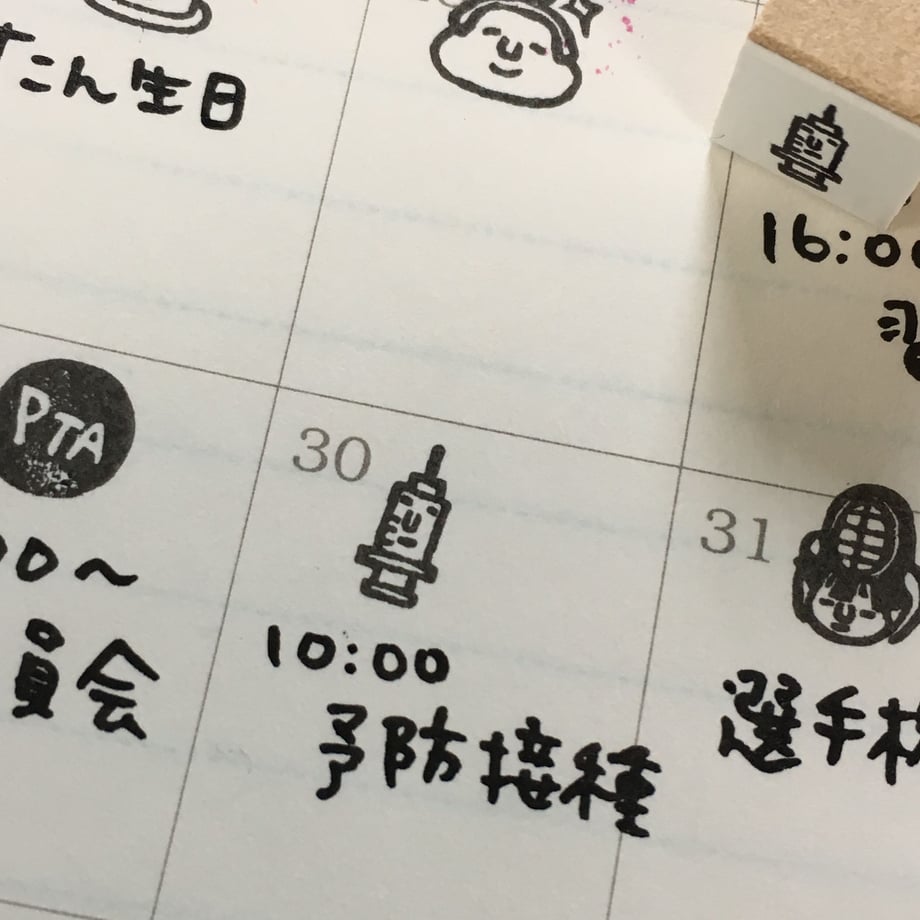 たん生日
16:00
PTA
00～
員会
30
10:00
予防接種
31
選手